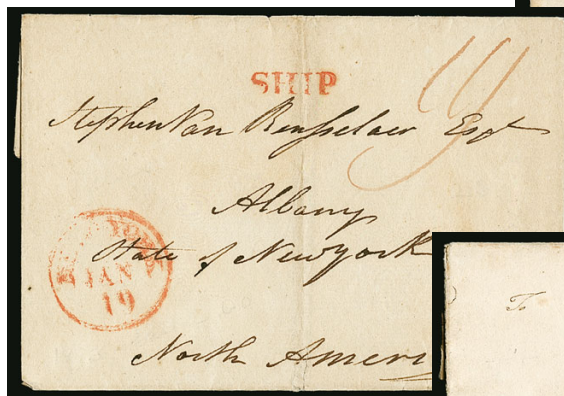 SHIP
19
Stephen Van Rensselaer Esqr
Albany
State of New York
North Ameri
NEW YORK
JAN
19
To